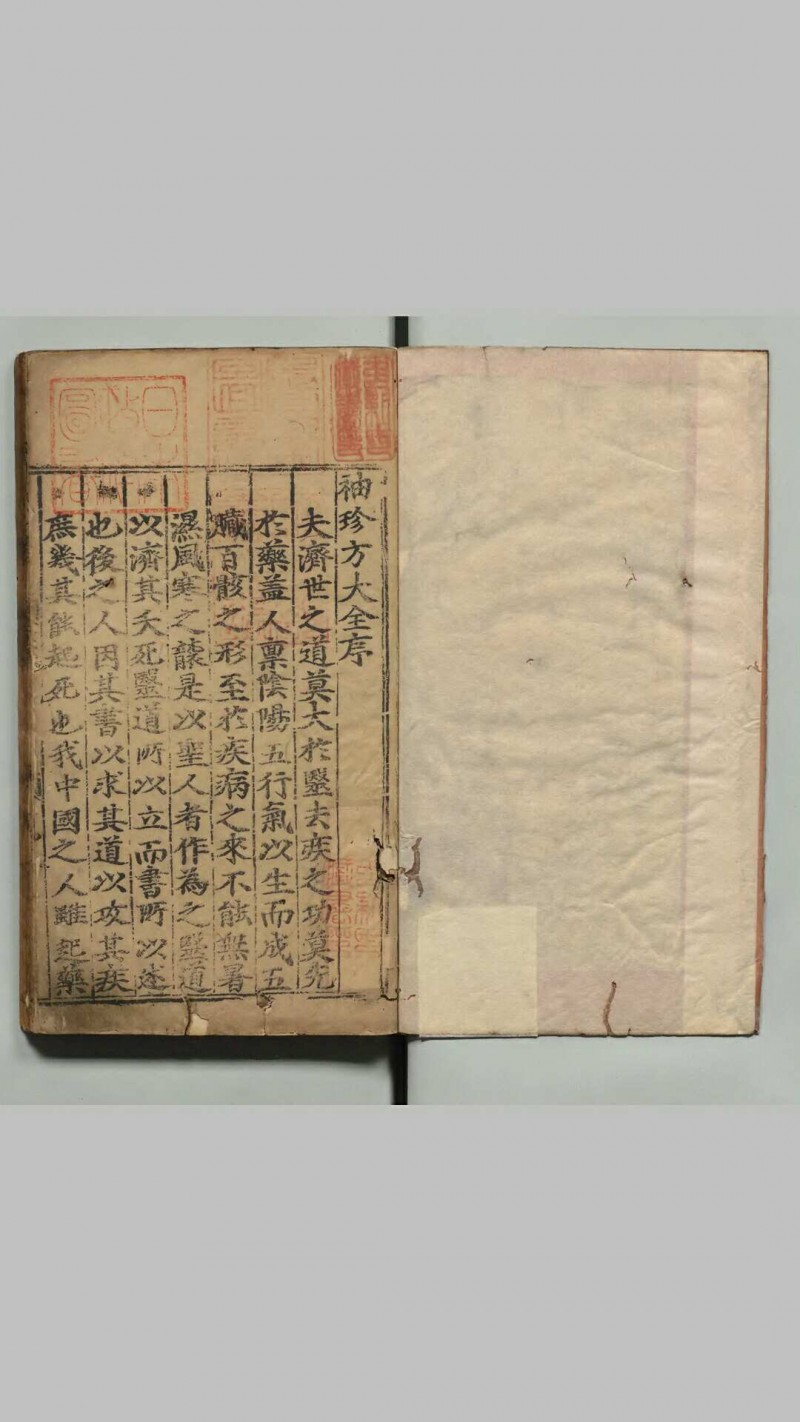 袖珍方大全序
夫濟世之道莫大於毉去疾之功莫先
於藥蓋人稟陰陽五行氣以生而成五
臟百骸之形至於疾病之來不能無暑
濕風寒之是以聖人者作為之毉道
以濟其夭死毉道所以立而書所以述
也後之人因其書以求其道以攻其疾
庶幾其能起死也我中國之人雖起藥